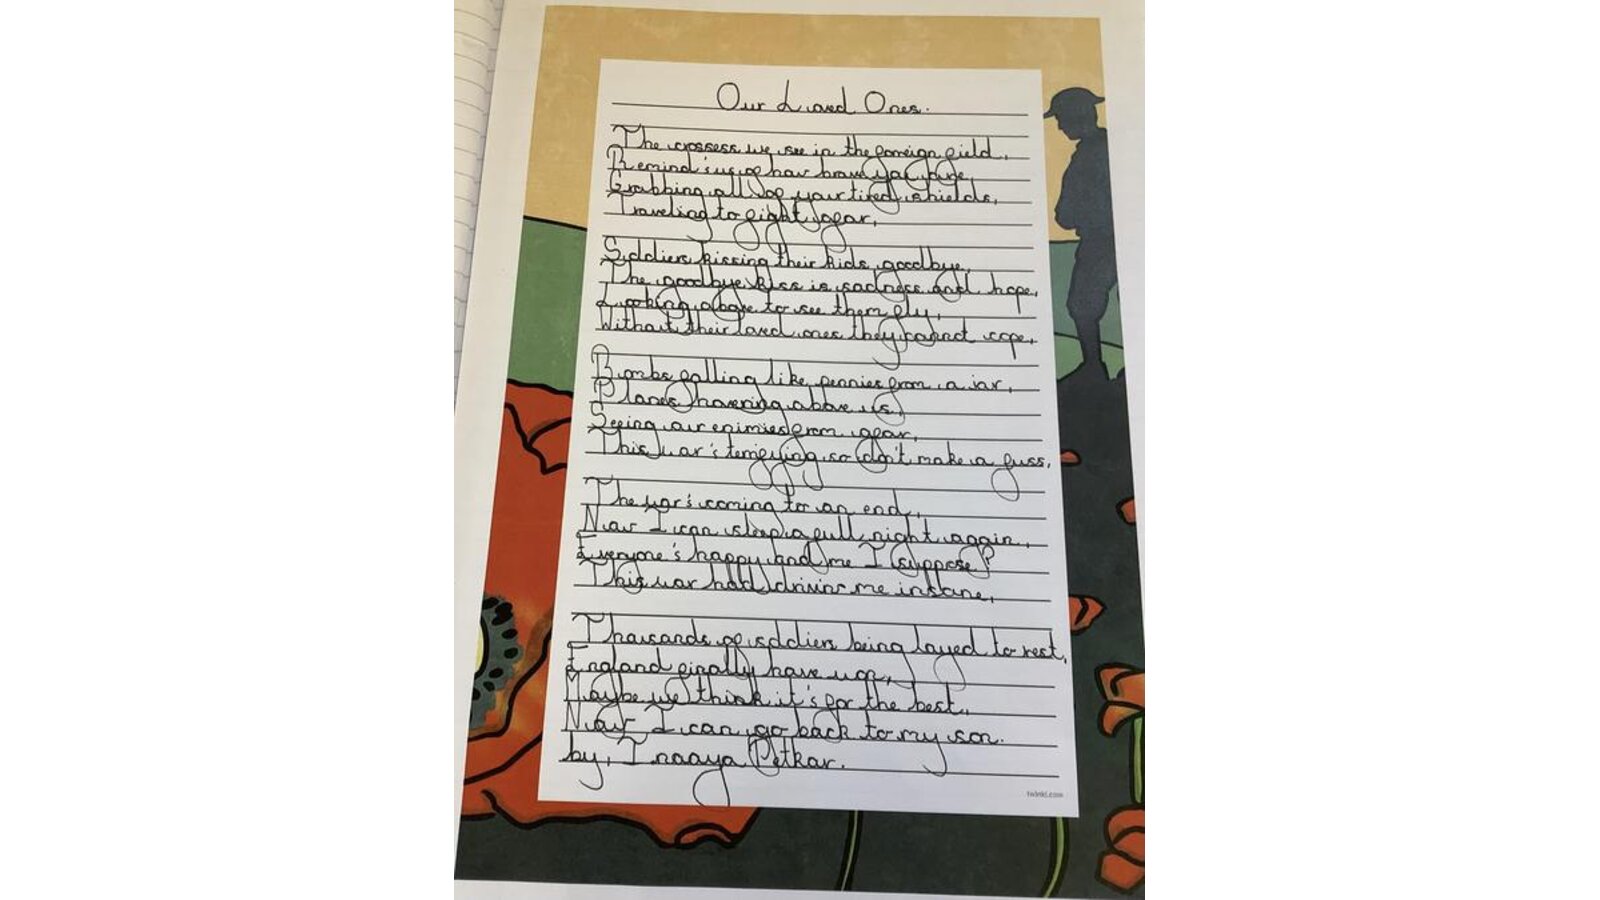 Our Loved Ones.
The crossess we see in the foreign field,
Remind's us of how brave you were,
Grabbing all of your tired shields,
Traveling to fight afar,
Soldiers kissing their kids goodbye,
The goodbye kiss is sadness and hope,
Looking above to see them fly,
Without their loved ones they cannot cope,
Bombs falling like pennies from a jar,
Planes hovering above us,
Seeing our enimies from afar,
This war's terrifying so don't make a fuss,
The war's coming to an end,
Now I can sleep a full night again,
Everyone's happy and me I suppose?
This war had drivin me insane,
Thousands of soldiers being layed to rest,
England finally have won,
Maybe we think it's for the best,
Now I can go back to my son.
by, Inaaya Petkar.
twinkl.com